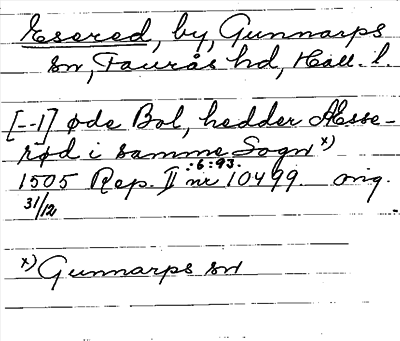 Esered, by, Gunnarps
sn, Faurås hd, Hall. l.
[--1] øde Bol, hedder Æsse-
rød i samme Sogn x)
:6:93.
1505 Rep. II nr 10499. orig.
31/12
x) Gunnarps sn